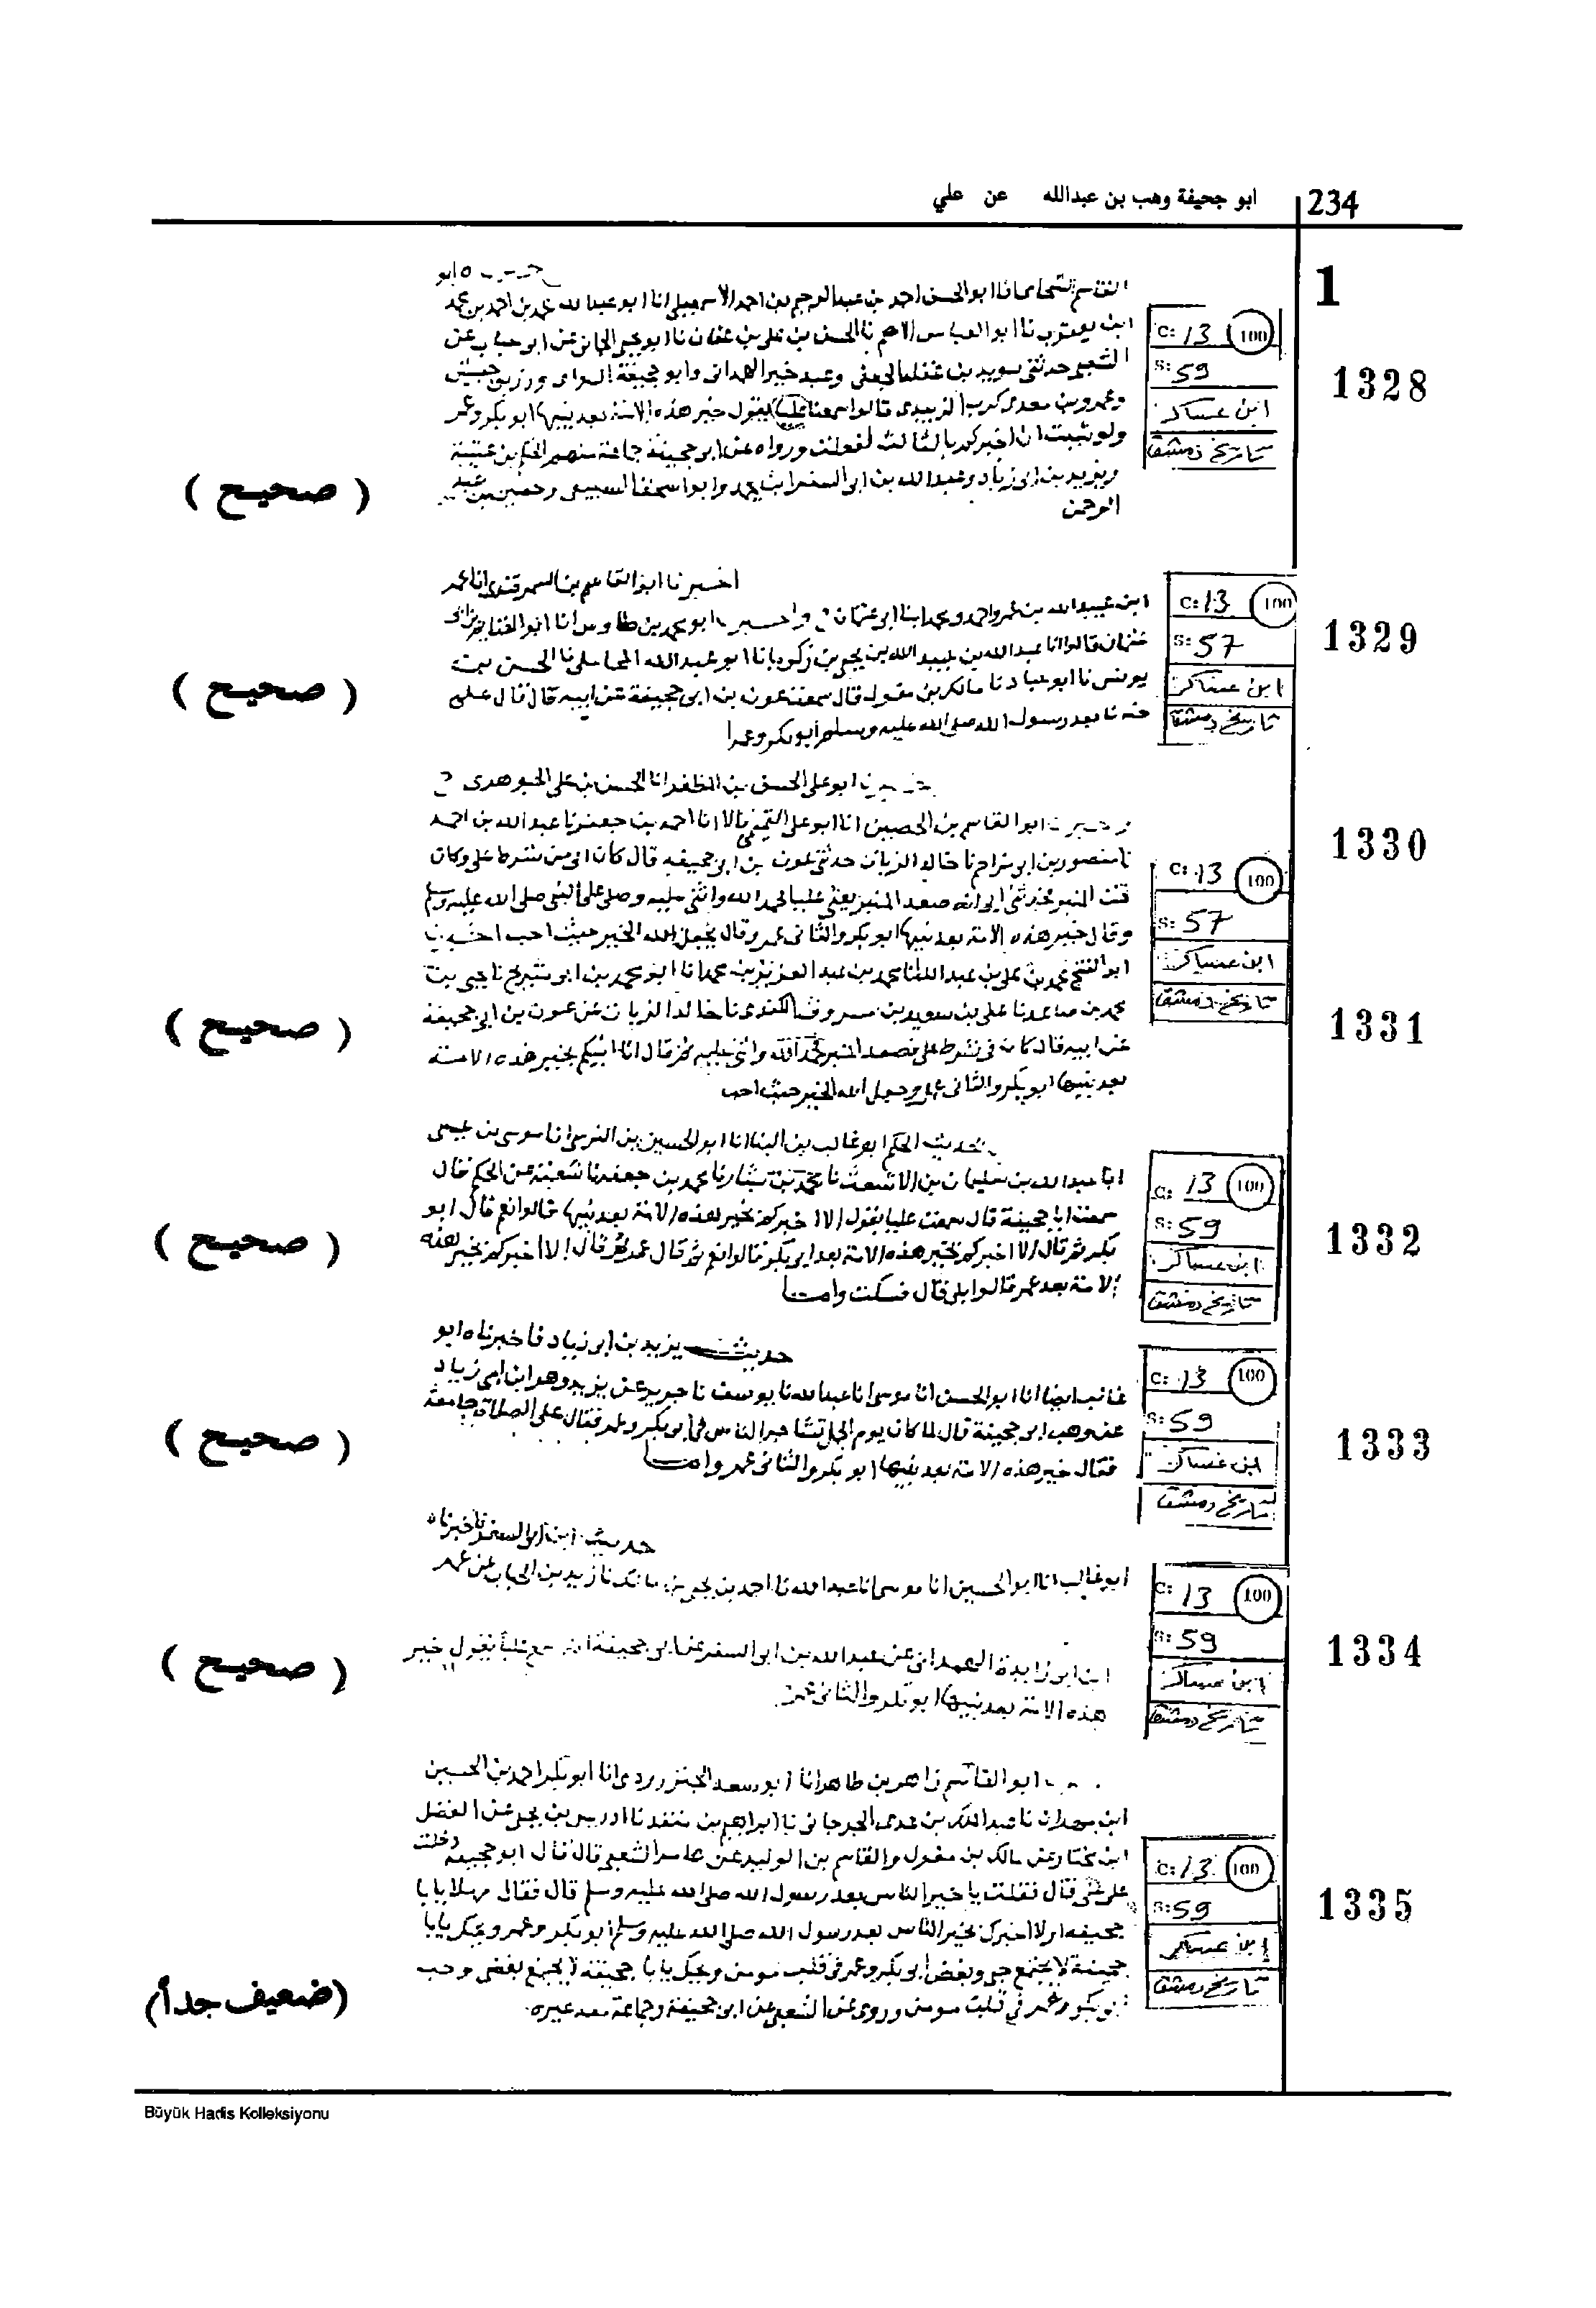 234 ابو جحيفة وهب بن عبدالله عن علي
1
1328
C: 13 100
S: 59
ابن عساكر
تاريخ دمشق
الشعبي حدثني سويد بن غفلة الجعفي وعبد خير الهمداني وابو جحيفة السوائي وزر بن حبيش
وعمرو بن معدي كرب الزبيدي قالوا سمعنا عليا يقول خير هذه الامة بعد نبيها ابو بكر وعمر
ولو شيت ان اخبركم بالثالث لفعلت ورواه عن ابي جحيفة جماعة منهم الحكم بن عتيبة
ويزيد بن ابي زياد وعبد الله بن ابي السفر ابن يحمد وابو اسحق السبيعي وحصين بن عبد
الرحمن
( صحيح )
1329
C: 13 100
S: 57
ابن عساكر
تاريخ دمشق
اخبرنا ابو القاسم بن السمرقندي انا عمر
عثمان قالوا انا عبد الله بن عبيد الله بن يحيى بن زكريا نا ابو عبد الله المحاملي نا الحسن بن
يونس نا ابو عباد نا مالك بن مغول قال سمعت عون بن ابي جحيفة عن ابيه قال قال علي
خيرنا بعد رسول الله صلى الله عليه وسلم ابو بكر وعمر
( صحيح )
1330
C: 13 100
S: 57
ابن عساكر
تاريخ دمشق
ابو علي الحسن بن المظفر انا الحسن بن علي الجوهري ح
ابو القاسم بن الحصين انا ابو علي التميمي قالا انا احمد بن جعفر نا عبد الله بن احمد
نا منصور بن ابي مزاحم نا خالد الزيات حدثني عون بن ابي جحيفه قال كان ابي من شرط علي وكان
تحت المنبر فحدثني ابي انه صعد المنبر يعني عليا فحمد الله واثنى عليه وصلى على النبي صلى الله عليه وسلم
وقال خير هذه الامة بعد نبيها ابو بكر والثاني عمر وقال يجعل الله الخير حيث احب
1331
ابو الفتح محمد بن علي بن عبد الله انا محمد بن عبد العزيز بن محمد انا ابو محمد بن ابي شريح نا يحيى بن
محمد بن صاعد نا علي بن سويد بن مسروق الكندي نا خالد الزيات عن عون بن ابي جحيفة
عن ابيه قال كان في شرط علي فصعد المنبر فحمد الله واثنى عليه ثم قال انا انبيكم بخير هذه الامة
بعد نبيها ابو بكر والثاني عمر وجعل الله الخير حيث احب
( صحيح )
1332
C: 13 100
S: 59
ابن عساكر
تاريخ دمشق
بحديث الحكم ابو غالب بن البنا انا ابو الحسين بن النرسي انا موسى بن عيسى
انا عبد الله بن سليمان بن الاشعث نا محمد بن بشار نا محمد بن جعفر نا شعبة عن الحكم قال
سمعت ابا جحيفة قال سمعت عليا يقول الا اخبركم بخير هذه الامة بعد نبيها قالوا نعم قال ابو
بكر ثم قال الا اخبركم بخير هذه الامة بعد ابي بكر قالوا نعم ثم قال عمر ثم قال الا اخبركم بخير هذه
الامة بعد عمر قالوا بلى قال فسكت
( صحيح )
1333
C: 13 100
S: 59
ابن عساكر
تاريخ دمشق
حديث يزيد بن ابي زياد فاخبرناه ابو
غالب ايضا انا ابو الحسن انا موسى انا عبد الله نا يوسف نا جرير عن يزيد وهو ابن ابي زياد
فقال خير هذه الامة بعد نبيها ابو بكر والثاني عمر
( صحيح )
1334
C: 13 100
S: 59
ابن عساكر
تاريخ دمشق
حديث ابن ابي السفر فاخبرناه
ابو غالب انا ابو الحسين انا موسى انا عبد الله نا احمد بن يحيى بن مالك نا زيد بن الحباب عن عمر
ابن ابي زايدة الهمداني عن عبد الله بن ابي السفر عن ابي جحيفة انه سمع عليا يقول خير
هذه الامة بعد نبيها ابو بكر والثاني عمر
( صحيح )
1335
C: 13 100
S: 59
ابن عساكر
تاريخ دمشق
ابو القاسم زاهر بن طاهر انا ابو سعد الجنزرودي انا ابو بكر احمد بن الحسين
ابن مهران نا عبد الملك بن عدي الجرجاني نا ابراهيم بن منقذ نا ادريس بن يحيى عن الفضل
ابن مختار عن مالك بن مغول والقاسم بن الوليد عن عامر الشعبي قال قال ابو جحيفة دخلت
على علي قال فقلت يا خير الناس بعد رسول الله صلى الله عليه وسلم قال فقال مهلا يا با
جحيفه اولا اخبرك بخير الناس بعد رسول الله صلى الله عليه وسلم ابو بكر وعمر ويحك يا با
جحيفة لا يجتمع حبي وبغض ابو بكر وعمر في قلب مومن ويحك يا با جحيفة لا يجتمع بغضي وحب
ابو بكر وعمر في قلب مومن وروي عن الشعبي عن ابي جحيفة وجماعة معه غيره
(ضعيف جداً)
Büyük Hadis Kolleksiyonu